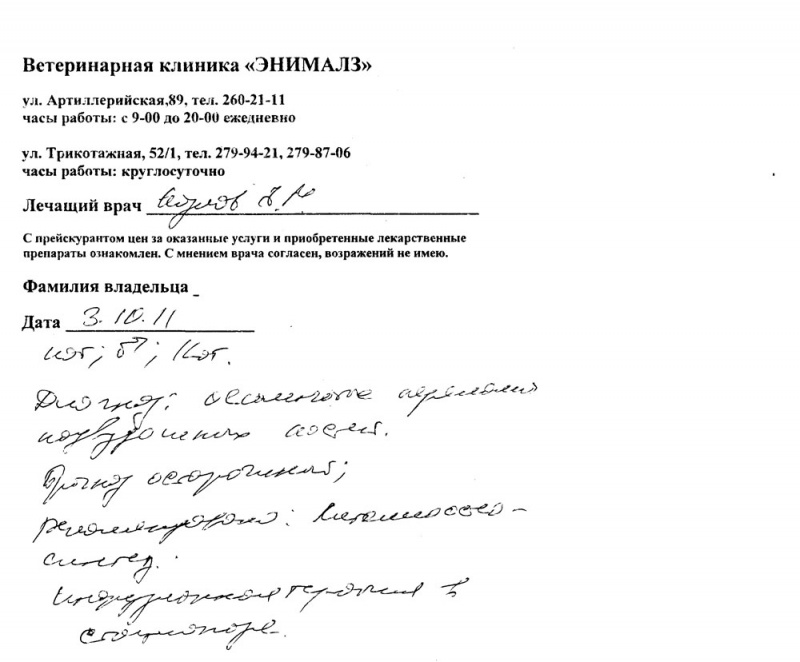 Ветеринарная клиника «ЭНИМАЛЗ»
ул. Артиллерийская,89, тел. 260-21-11
часы работы: с 9-00 до 20-00 ежедневно
ул. Трикотажная, 52/1, тел. 279-94-21, 279-87-06
часы работы: круглосуточно
Лечащий врач
С прейскурантом цен за оказанные услуги и приобретенные лекарственные
препараты ознакомлен. С мнением врача согласен, возражений не имею.
Фамилия владельца
Дата 3.10.11
кот; Кот.
Диагноз: оскольчатые переломы
костей.
Прогноз осторожный;
рекомендовано: металлоосео-
синтез.
Инфузионная терапия в
стационаре.